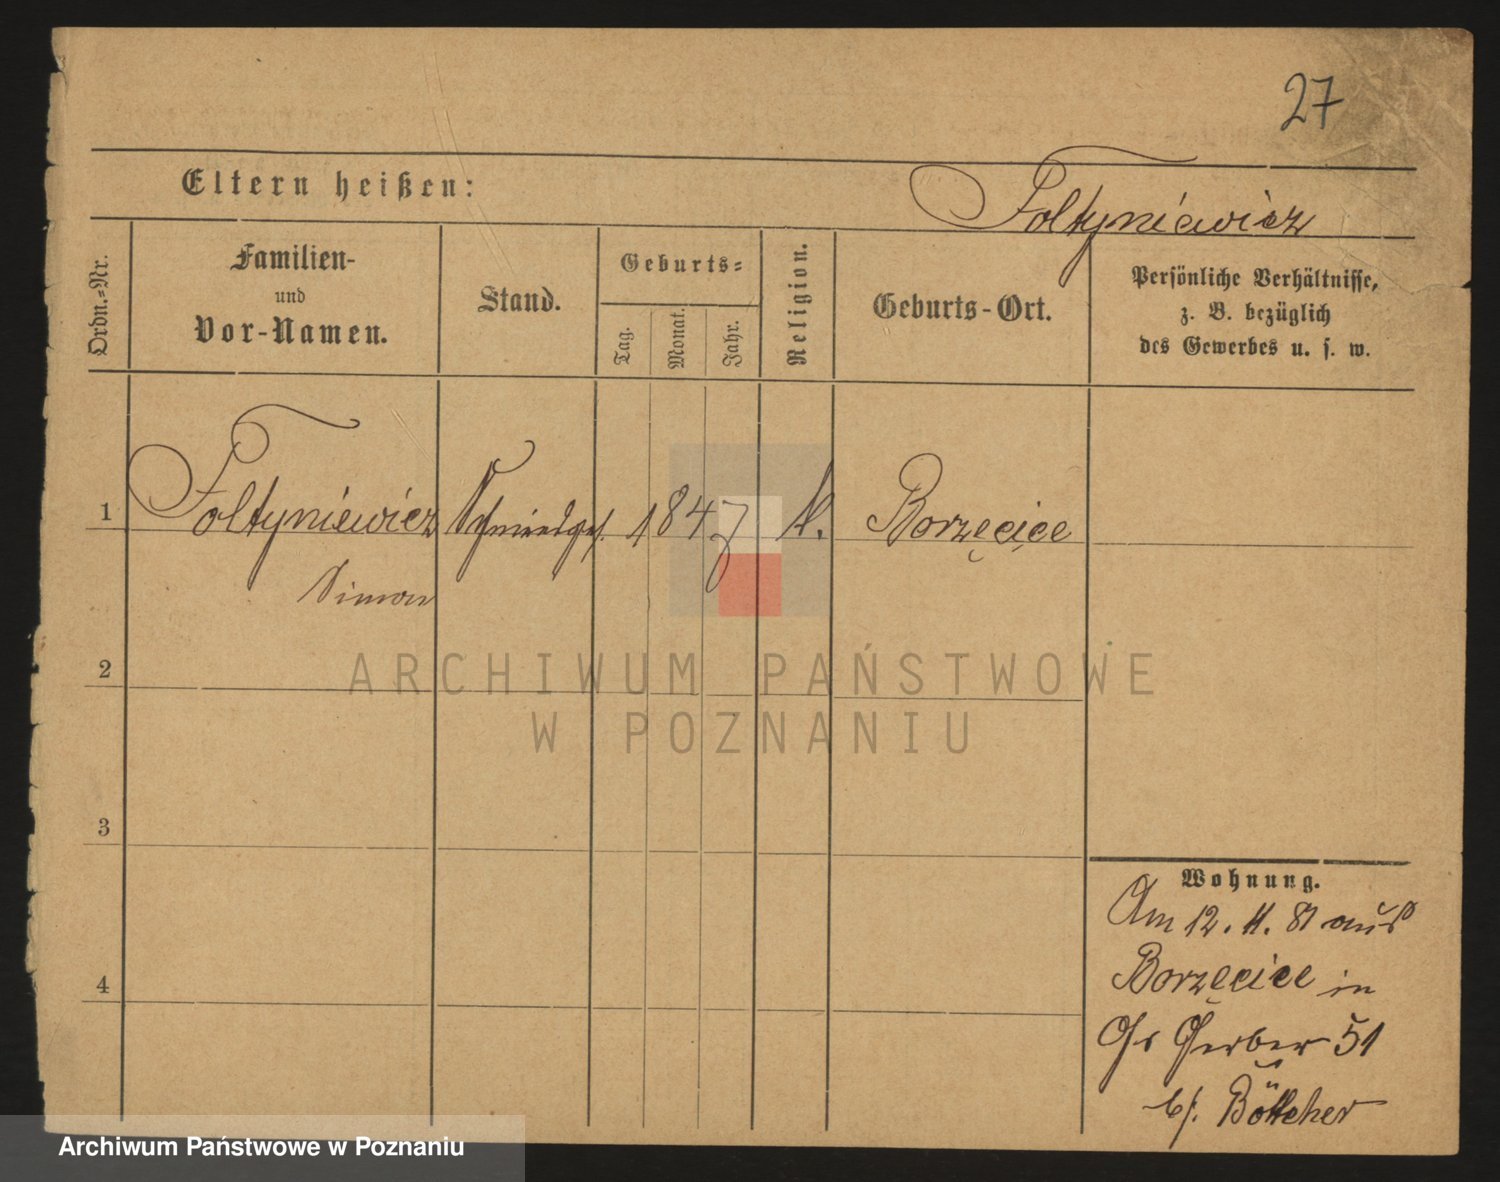 27
Eltern heißen:
Foltyniewicz
Ordn.-Nr.
Familien-
und
Vor-Namen.
Stand.
Geburts-
Tag.
Monat.
Jahr.
Religion.
Geburts-Ort.
Persönliche Verhältnisse,
z. B. bezüglich
des Gewerbes u. s. w.
1
Foltyniewicz
Simon
Schmiedges.
1847
K.
Borzęcice
2
3
4
Wohnung.
Am 12. 11. 81 aus
Borzęcice in
Gr Gerber 51
b/. Böttcher
ARCHIWUM PAŃSTWOWE
W POZNANIU
Archiwum Państwowe w Poznaniu